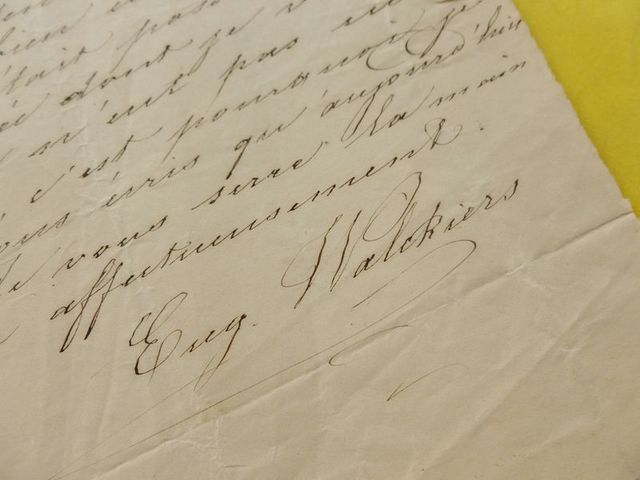 bien
était pas
dont je
n'eut pas un
c'est pourquoi je
vous écris qu'aujourd'hui
Je vous serre la main
affectueusement.
Eug. Walckiers